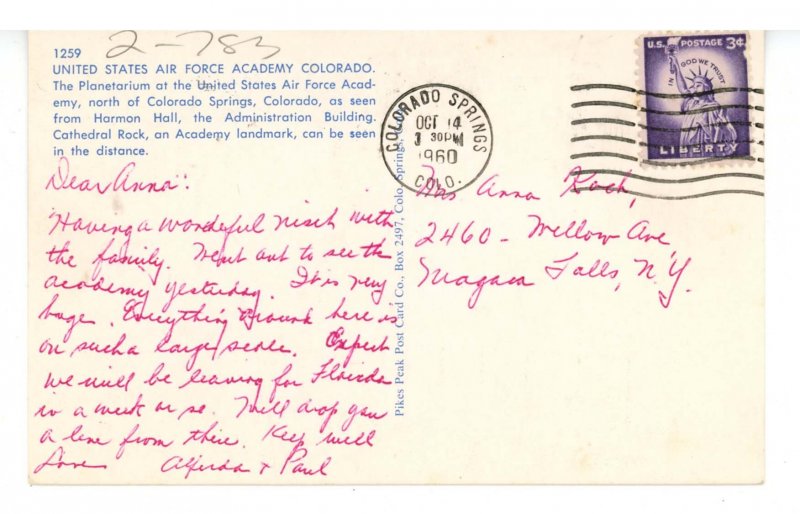 2-783
1259
UNITED STATES AIR FORCE ACADEMY COLORADO.
The Planetarium at the United States Air Force Acad-
emy, north of Colorado Springs, Colorado, as seen
from Harmon Hall, the Administration Building.
Cathedral Rock, an Academy landmark, can be seen
in the distance.
Dear Anna:
Having a wonderful visit with
the family. Went out to see the
academy yesterday. It is very
huge. Everything around here is
on such a large scale. Expect
we will be leaving for Florida
in a week or so. Will drop you
a line from there. Keep well
Love Alfreda + Paul
Pikes Peak Post Card Co., Box 2497, Colo. Springs,
COLORADO SPRINGS
OCT 14
30PM
1960
COLO.
U.S. POSTAGE 3¢
IN GOD WE TRUST
LIBERTY
Mrs Anna Koch,
2460 - Willow Ave,
Niagara Falls, N.Y.